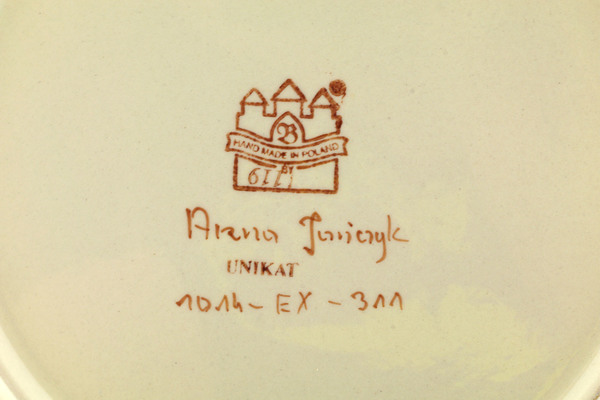 B
HAND MADE IN POLAND
BY
611
Anna Janiczyk
UNIKAT
1014-EX-311